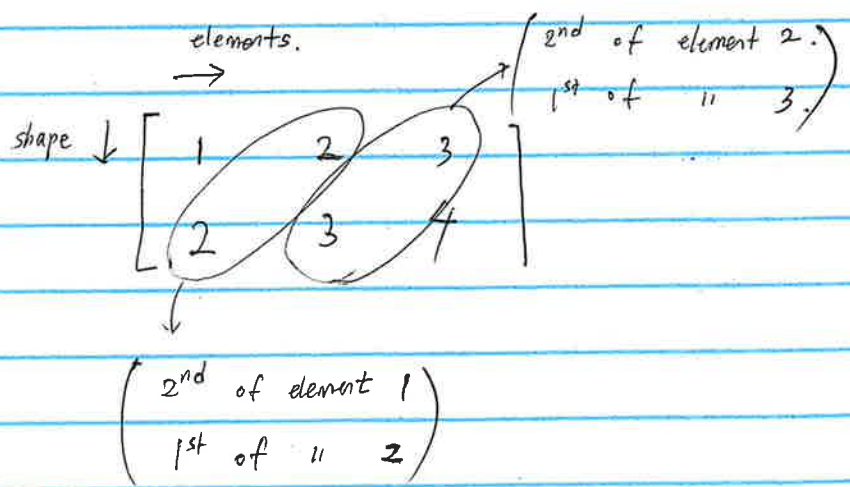 elements.
2nd of element 2.
1st of " 3.
shape
1 2 3
2 3 4
2nd of element 1
1st of " 2